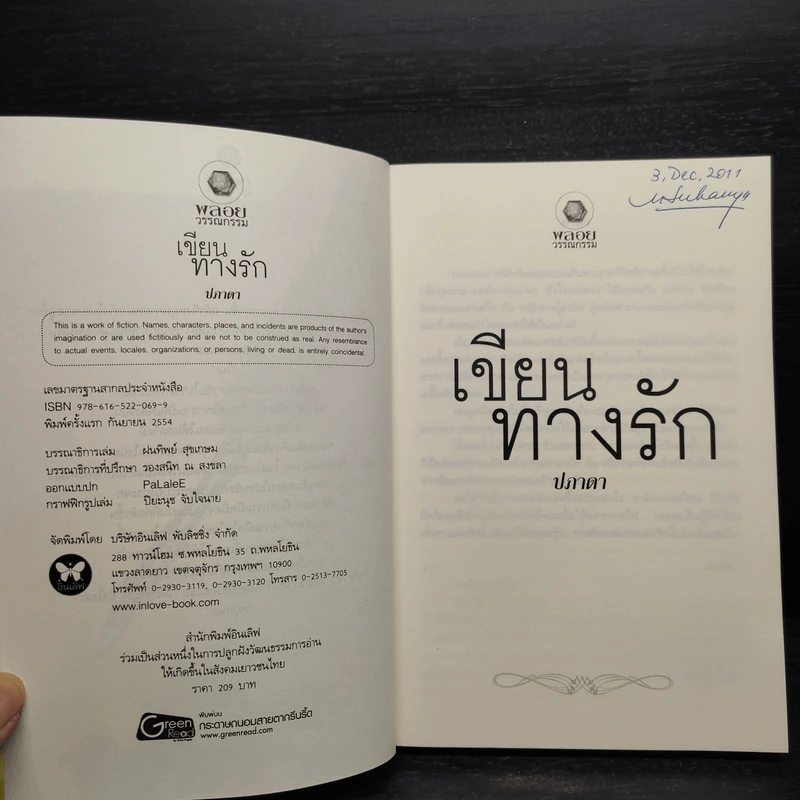 พลอย
วรรณกรรม
เขียน
ทางรัก
ปภาดา
This is a work of fiction. Names, characters, places, and incidents are products of the author's
imagination or are used fictitiously and are not to be construed as real. Any resemblance
to actual events, locales, organizations, or persons, living or dead, is entirely coincidental.
เลขมาตรฐานสากลประจำหนังสือ
ISBN 978-616-522-069-9
พิมพ์ครั้งแรก กันยายน 2554
บรรณาธิการเล่ม ฝนทิพย์ สุขเกษม
บรรณาธิการที่ปรึกษา รองสนิท ณ สงขลา
ออกแบบปก PaLaleE
กราฟฟิกรูปเล่ม ปิยะนุช จับใจนาย
จัดพิมพ์โดย บริษัทอินเลิฟ พับลิชชิ่ง จำกัด
288 ทาวน์โฮม ซ.พหลโยธิน 35 ถ.พหลโยธิน
แขวงลาดยาว เขตจตุจักร กรุงเทพฯ 10900
โทรศัพท์ 0-2930-3119, 0-2930-3120 โทรสาร 0-2513-7705
www.inlove-book.com
อินเลิฟ
สำนักพิมพ์อินเลิฟ
ร่วมเป็นส่วนหนึ่งในการปลูกฝังวัฒนธรรมการอ่าน
ให้เกิดขึ้นในสังคมเยาวชนไทย
ราคา 209 บาท
Green
Read
พิมพ์บน
กระดาษถนอมสายตากรีนรี้ด
www.greenread.com
3, Dec, 2011
พลอย
วรรณกรรม
เขียน
ทางรัก
ปภาดา